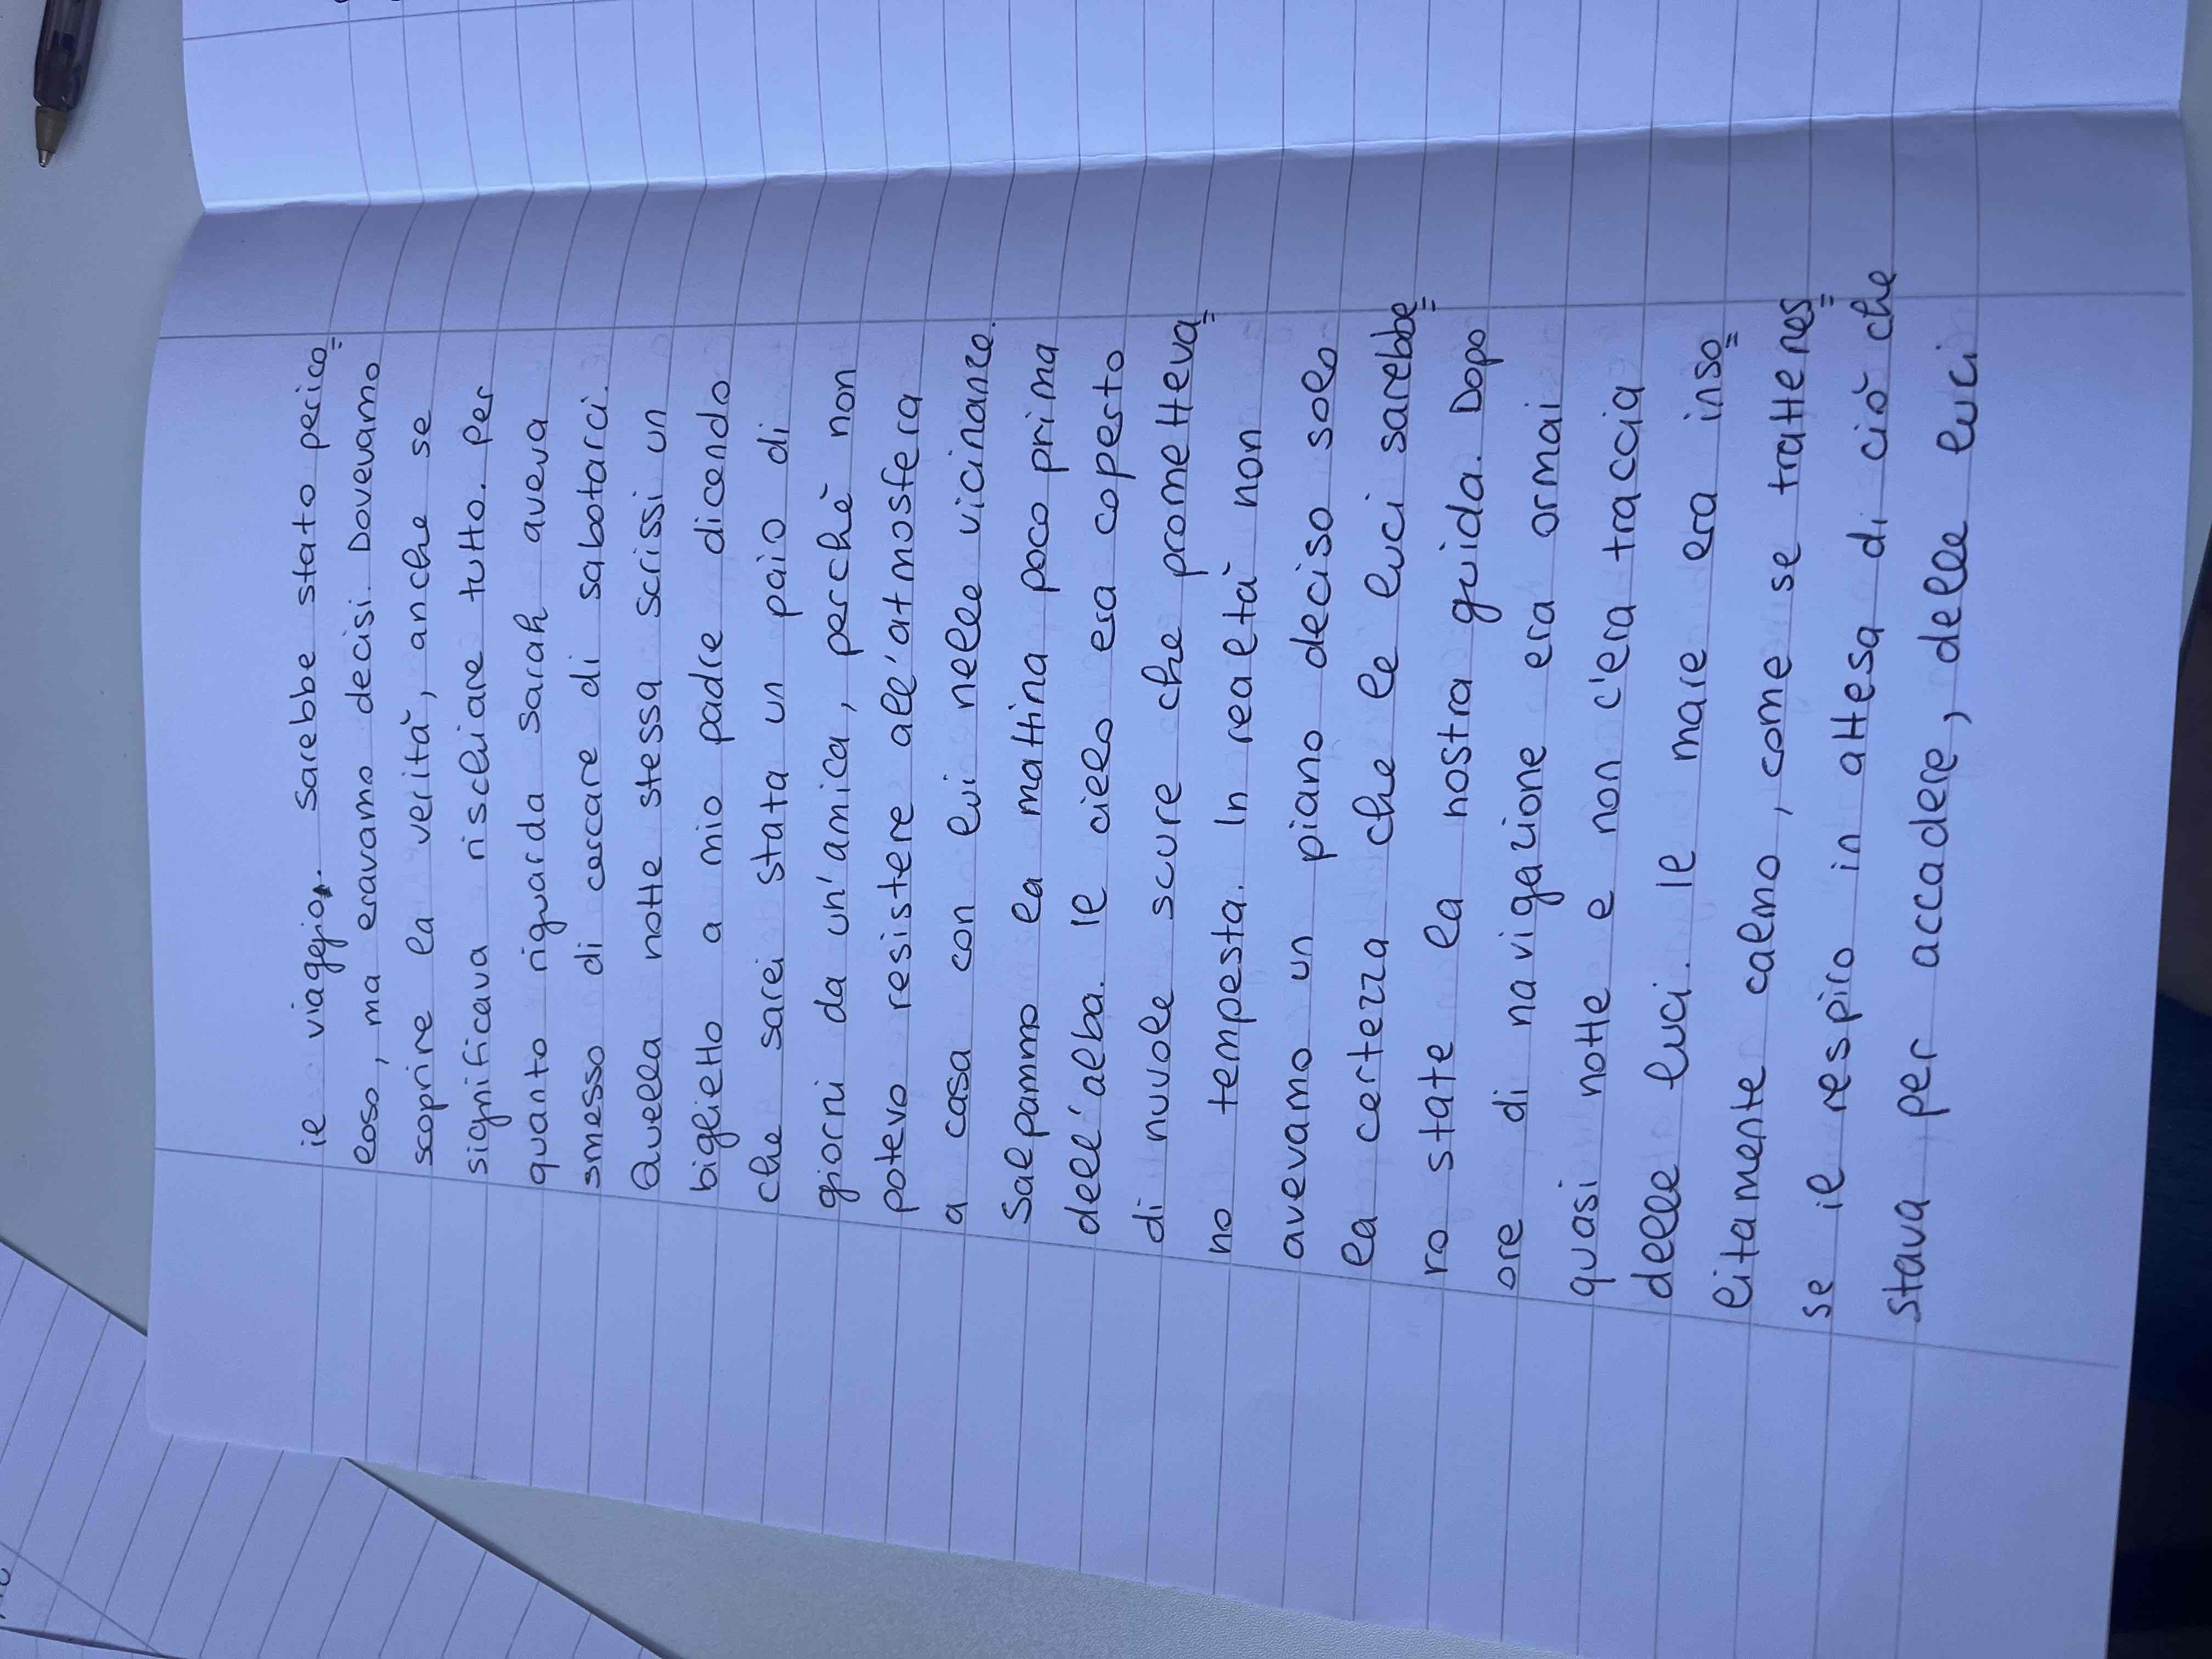 il viaggio. Sarebbe stato perico=
loso, ma eravamo decisi. Dovevamo
scoprire la verità, anche se
significava rischiare tutto. Per
quanto riguarda Sarah aveva
smesso di cercare di sabotarci.
Quella notte stessa scrissi un
biglietto a mio padre dicendo
che sarei stata un paio di
giorni da un'amica, perchè non
potevo resistere all'atmosfera
a casa con lui nelle vicinanze.
Salpammo la mattina poco prima
dell'alba. Il cielo era coperto
di nuvole scure che prometteva=
no tempesta. In realtà non
avevamo un piano deciso solo
la certezza che le luci sarebbe=
ro state la nostra guida. Dopo
ore di navigazione era ormai
quasi notte e non c'era traccia
delle luci. Il mare era inso=
litamente calmo, come se trattenes=
se il respiro in attesa di ciò che
stava per accadere, delle luci